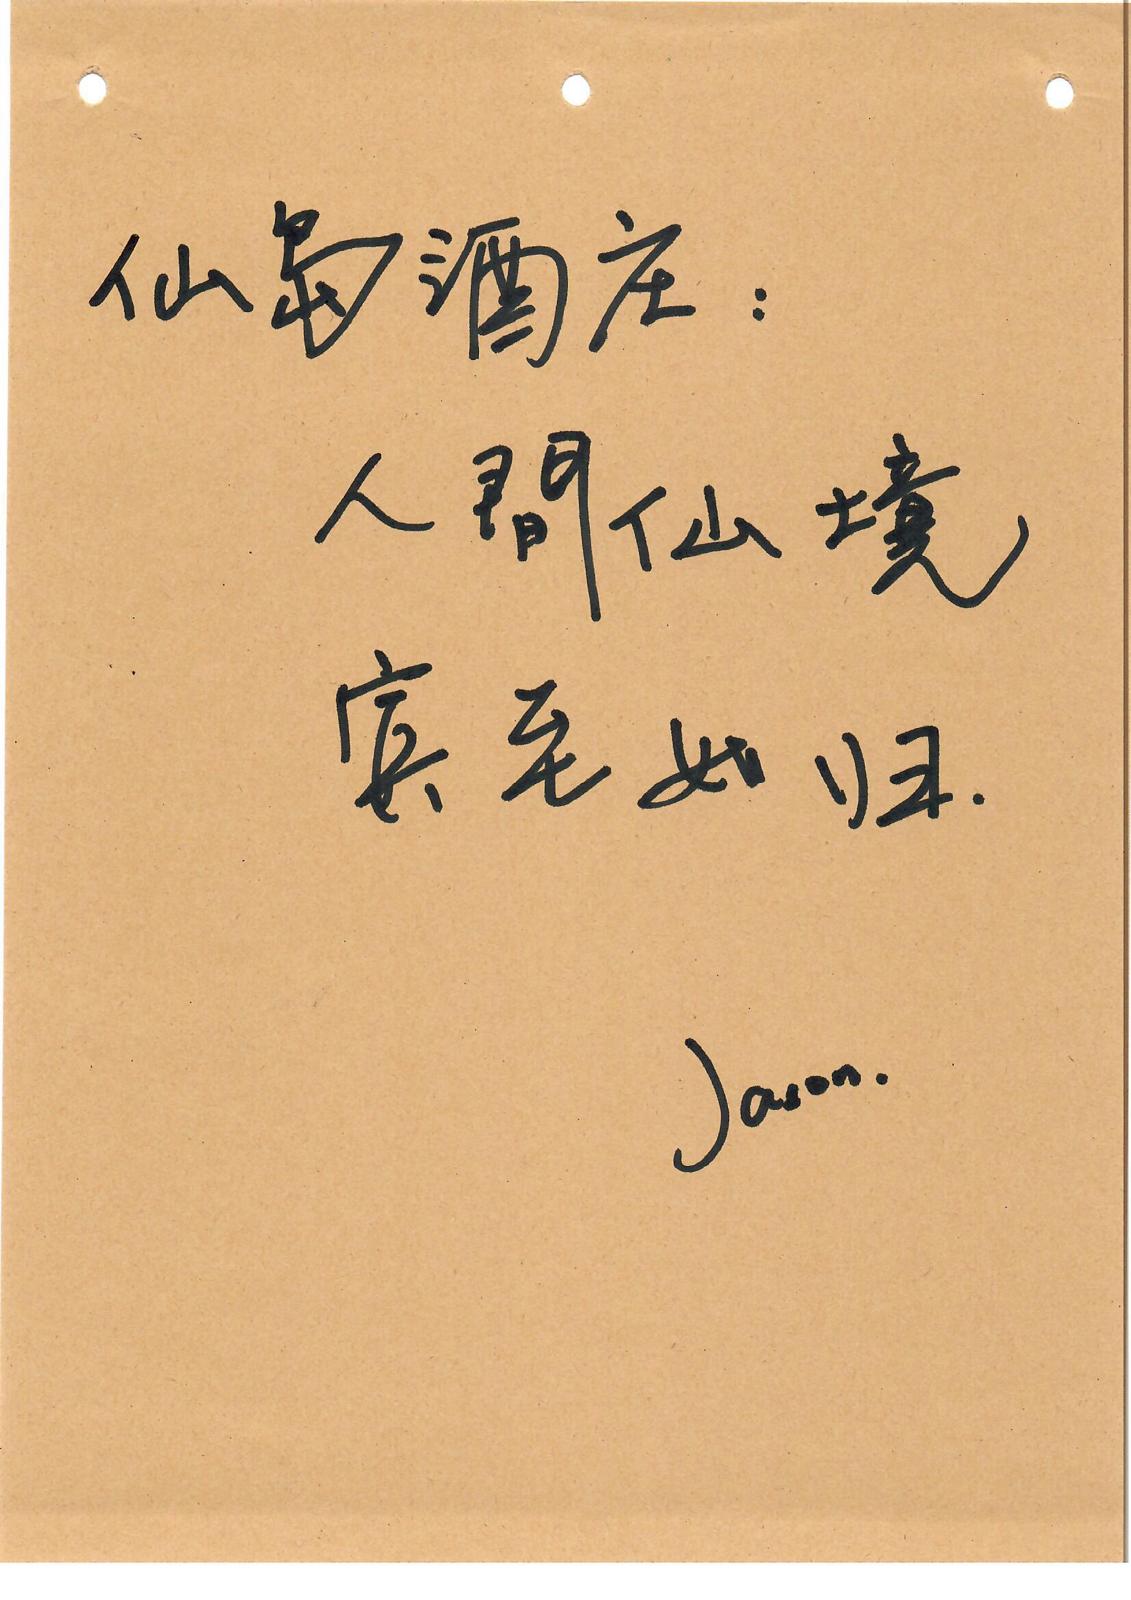 仙岛酒庄：
人間仙境
宾至如归.
Jason.